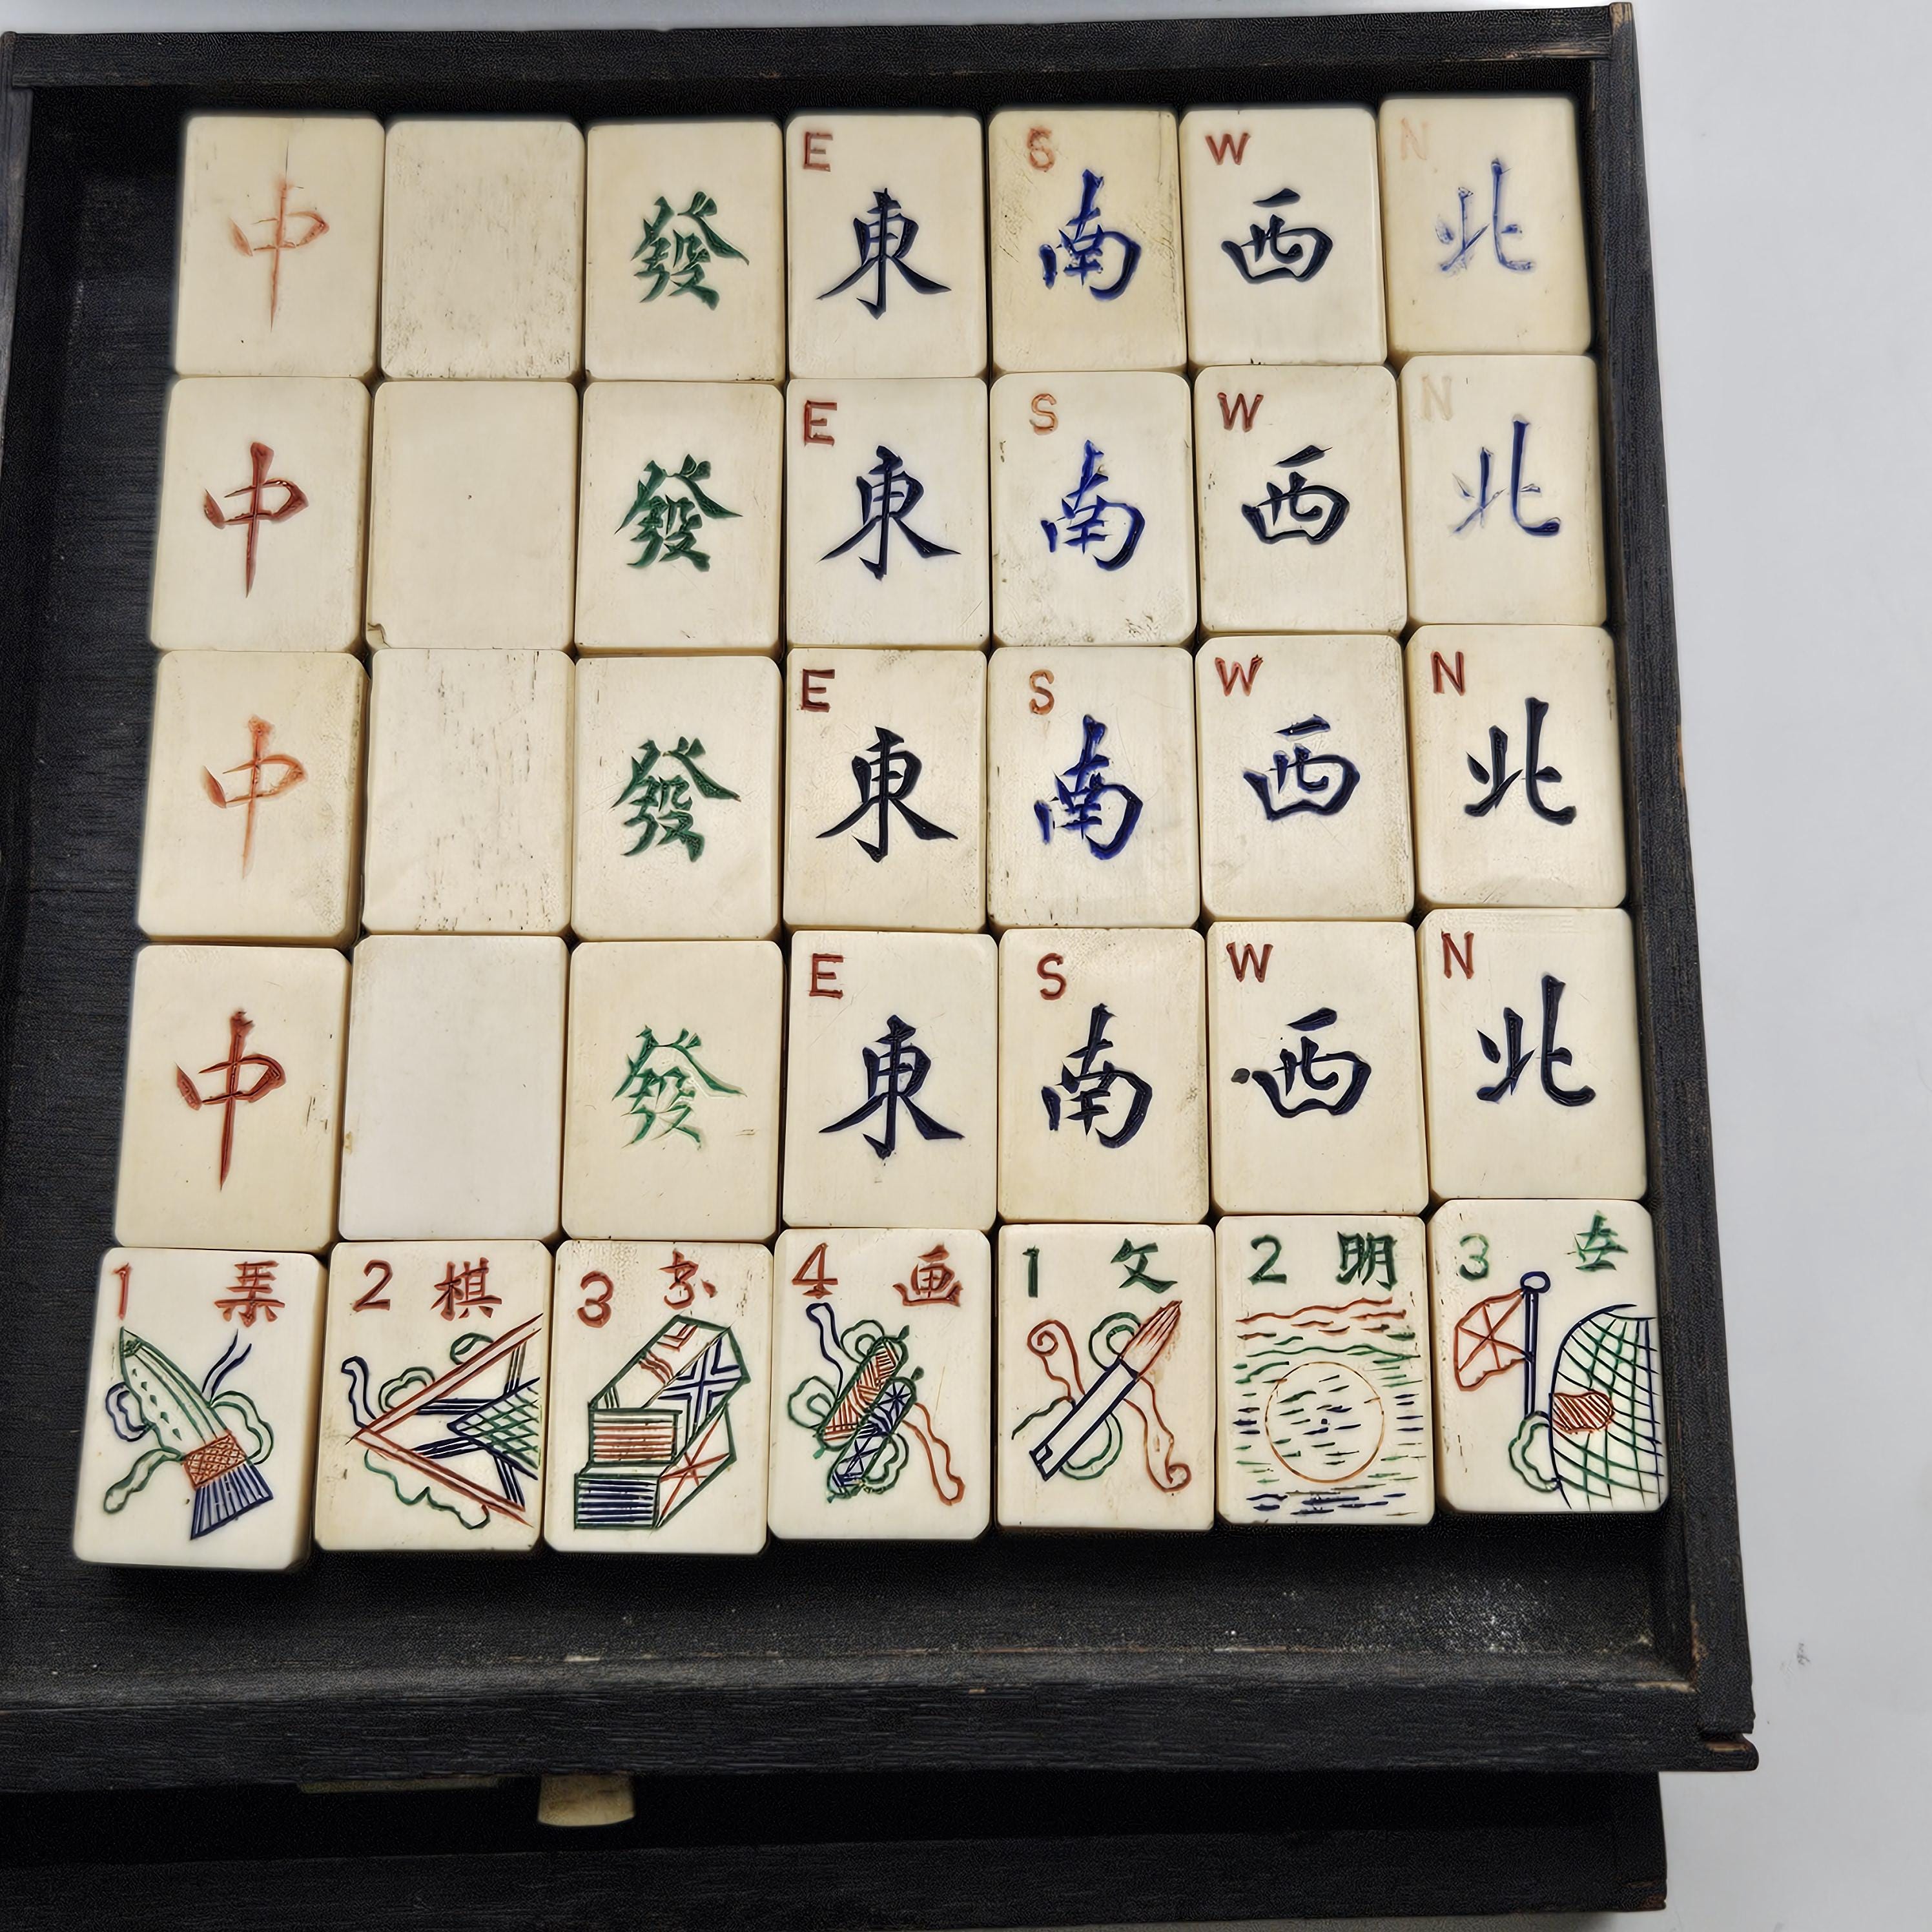 E S W N
中 發 東 南 西 北
E S W N
中 發 東 南 西 北
E S W N
中 發 東 南 西 北
E S W N
中 發 東 南 西 北
1 琹 2 棋 3 书 4 画 1 文 2 明 3